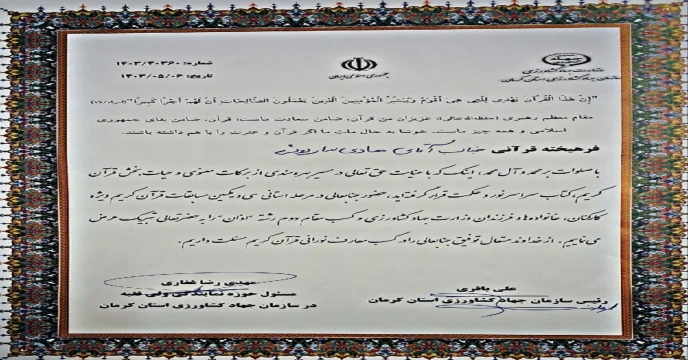 شماره: ۱۴۰۳/۴۰۳۶۰
تاریخ: ۱۴۰۳/۰۵/۰۶
جمهوری اسلامی ایران
وزارت جهاد کشاورزی
سازمان جهاد کشاورزی استان کرمان
"إِنَّ هَٰذَا الْقُرْآنَ يَهْدِي لِلَّتِي هِيَ أَقْوَمُ وَيُبَشِّرُ الْمُؤْمِنِينَ الَّذِينَ يَعْمَلُونَ الصَّالِحَاتِ أَنَّ لَهُمْ أَجْرًا كَبِيرًا"
مقام معظم رهبری (حفظه‌الله‌تعالی): عزیزان من قرآن، ضامن سعادت ماست، قرآن، ضامن بقای جمهوری
اسلامی و همه چیز ماست. خوشا به حال ملت ما اگر قرآن و عترت را با هم داشته باشند.
فرهیخته قرآنی جناب آقای هادی
با صلوات بر محمد و آل محمد، اینک که با عنایت حق تعالی در مسیر بهره مندی از برکات معنوی و حیات بخش قرآن
کریم، کتاب سراسر نور و حکمت قرار گرفته‌اید، حضور جنابعالی در مرحله استانی سی و یکمین مسابقات قرآن کریم ویژه
کارکنان، خانواده‌ها و فرزندان وزارت جهاد کشاورزی و کسب مقام دوم رشته "اذان" را به حضرتعالی تبریک عرض
می نماییم. از خداوند متعال توفیق جنابعالی را در کسب معارف نورانی قرآن کریم مسئلت داریم.
علی باقری
رئیس سازمان جهاد کشاورزی استان کرمان
مهدی رضا غفاری
مسئول حوزه نمایندگی ولی فقیه
در سازمان جهاد کشاورزی استان کرمان